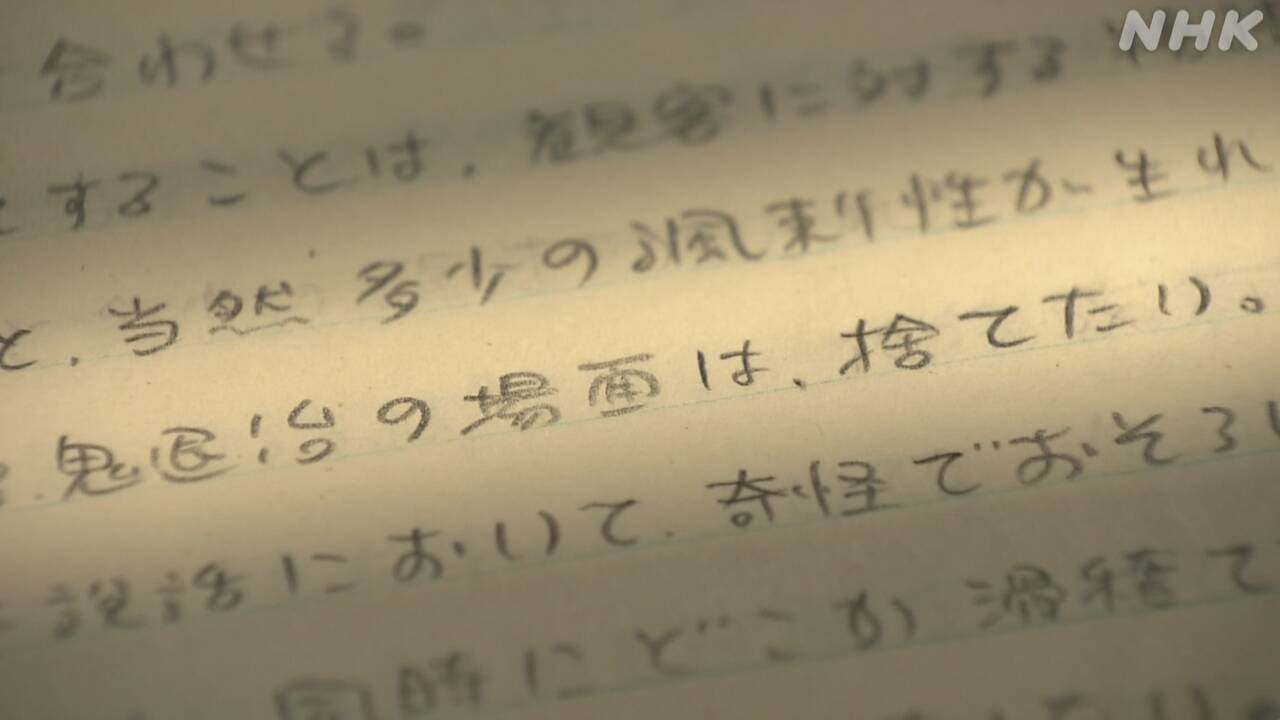 NHK
合わせる。
とすることは、観客に対する
と、当然多少の諷刺性が生れ
鬼退治の場面は、捨てたい。
説話において、奇怪でおそろし
同時にどこか滑稽で